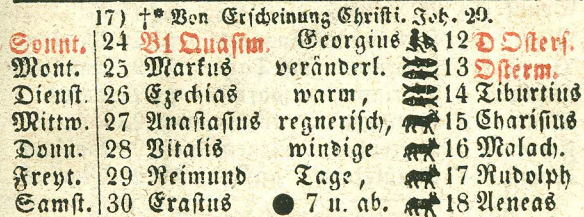 17) †* Von Erscheinung Christi. Joh. 20.
Sonnt. 24 B1 Quasim. Georgius 12 D Osters.
Mont. 25 Markus veränderl. 13 Osterm.
Dienst. 26 Ezechias warm, 14 Tiburtius
Mittw. 27 Anastasius regnerisch, 15 Charisius
Donn. 28 Vitalis windige 16 Malach.
Freyt. 29 Reimund Tage, 17 Rudolph
Samst. 30 Erastus ● 7 u. ab. 18 Aeneas